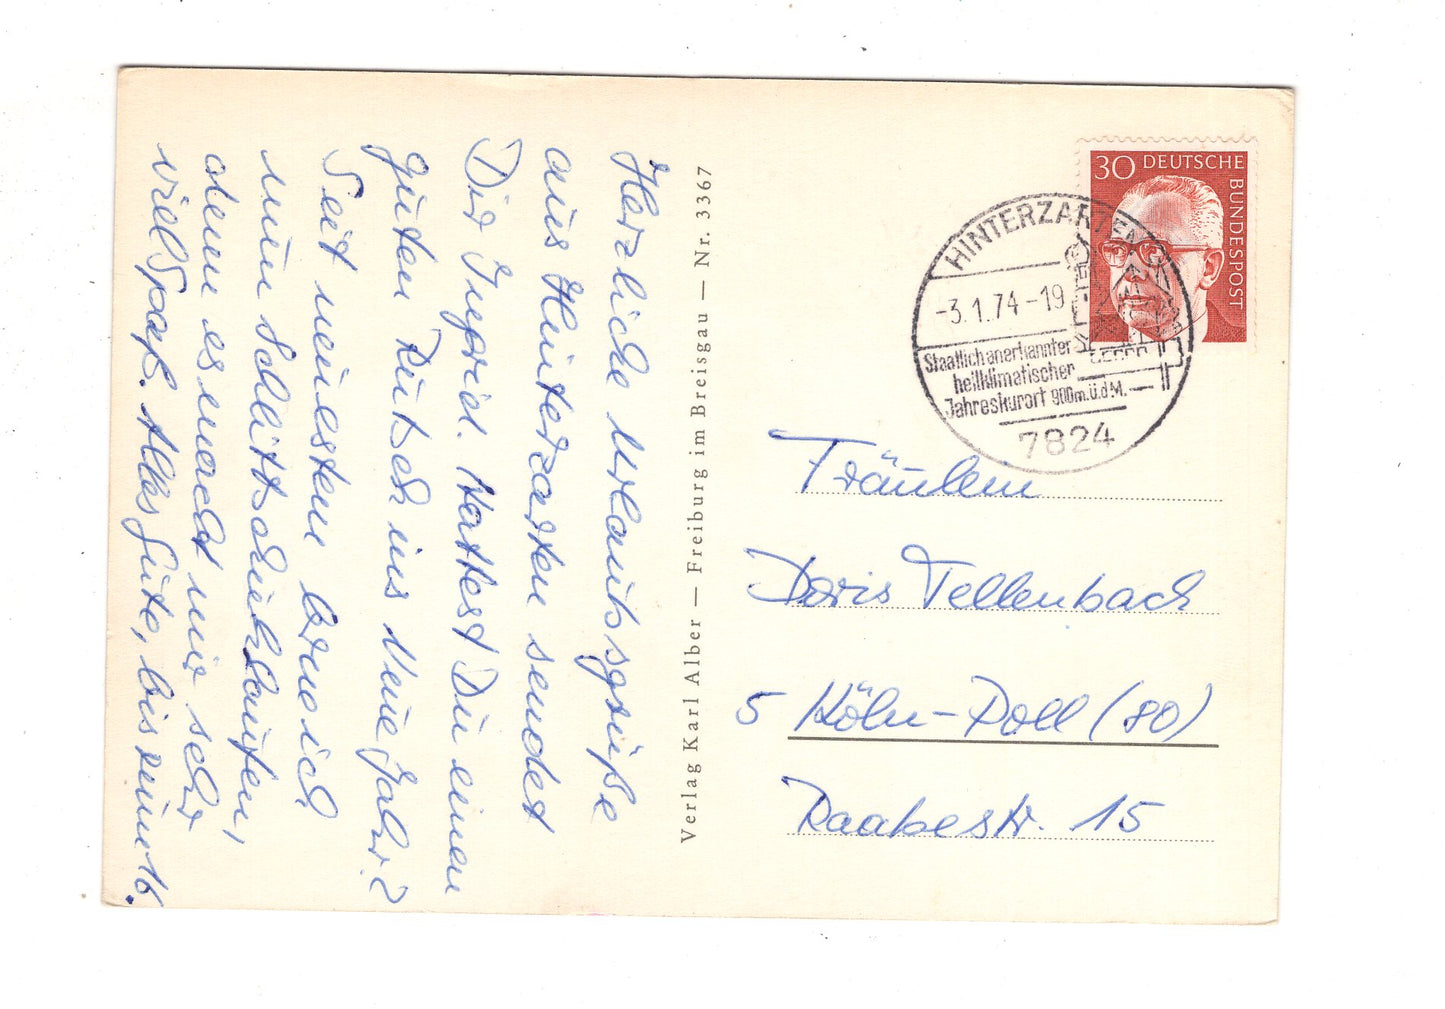 Herzliche Urlaubsgrüße
aus Hinterzarten sendet
Dir Ingrid. Hattest Du einen
guten Rutsch ins Neue Jahr?
Seit neuestem kann ich
nun Schlittschuhlaufen,
denn es macht mir sehr
viel Spaß. Alles Gute, bis zum 16.
Verlag Karl Alber — Freiburg im Breisgau — Nr. 3367
30 DEUTSCHE BUNDESPOST
HINTERZARTEN
-3.1.74-19
Staatlich anerkannter
heilklimatischer
Jahreskurort 900m.ü.d.M.
7824
Fräulein
Doris Tellenbach
5 Köln-Poll (80)
Raabestr. 15